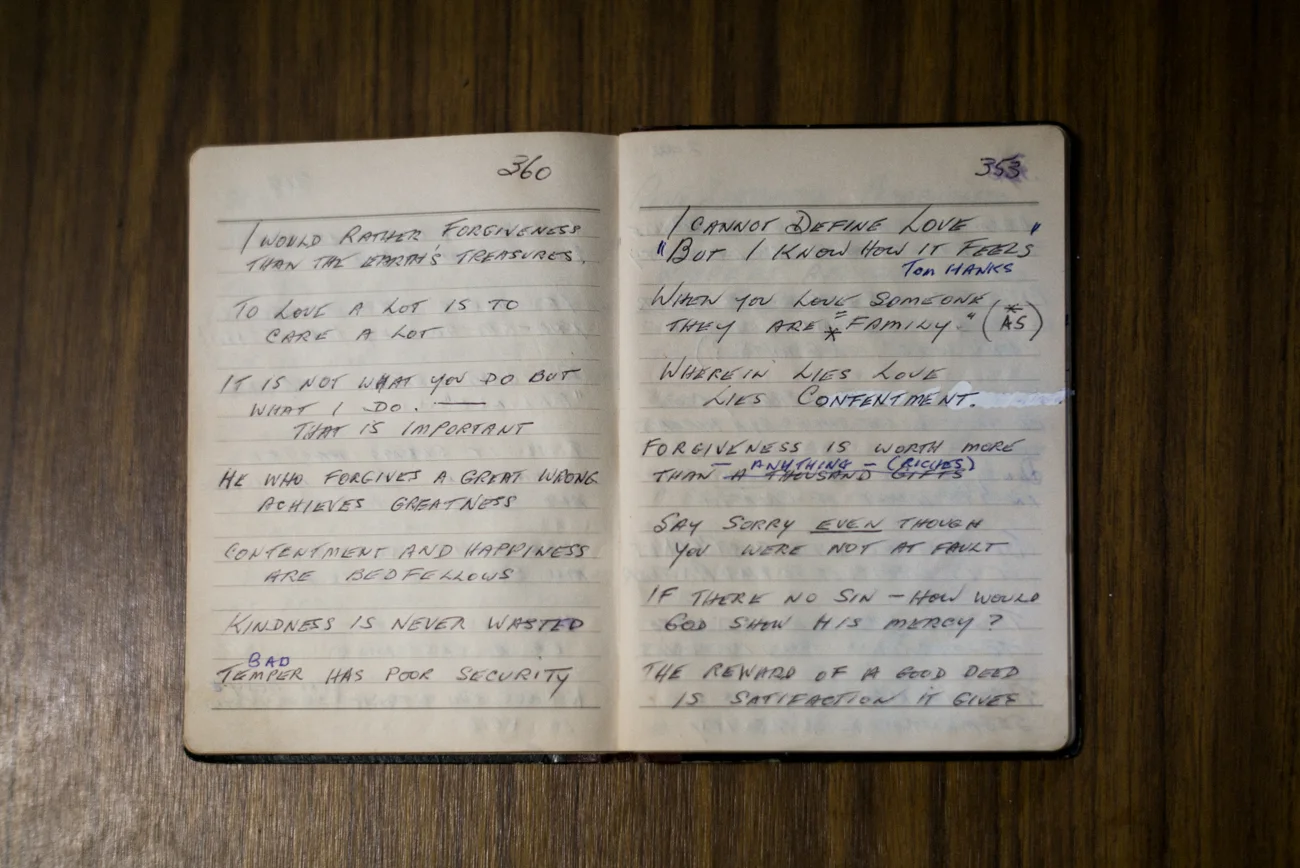 360
I WOULD RATHER FORGIVENESS
THAN THE EARTH'S TREASURES.
TO LOVE A LOT IS TO
CARE A LOT
IT IS NOT WHAT YOU DO BUT
WHAT I DO. —
THAT IS IMPORTANT
HE WHO FORGIVES A GREAT WRONG
ACHIEVES GREATNESS
CONTENTMENT AND HAPPINESS
ARE BEDFELLOWS
KINDNESS IS NEVER WASTED
BAD
TEMPER HAS POOR SECURITY
353
I CANNOT DEFINE LOVE
"BUT I KNOW HOW IT FEELS"
TOM HANKS
WHEN YOU LOVE SOMEONE
THEY ARE *"FAMILY." (*AS)
WHEREIN LIES LOVE
LIES CONTENTMENT.
FORGIVENESS IS WORTH MORE
— ANYTHING — (RICHES)
THAN A THOUSAND GIFTS
SAY SORRY EVEN THOUGH
YOU WERE NOT AT FAULT
IF THERE NO SIN — HOW WOULD
GOD SHOW HIS MERCY?
THE REWARD OF A GOOD DEED
IS SATISFACTION IT GIVES